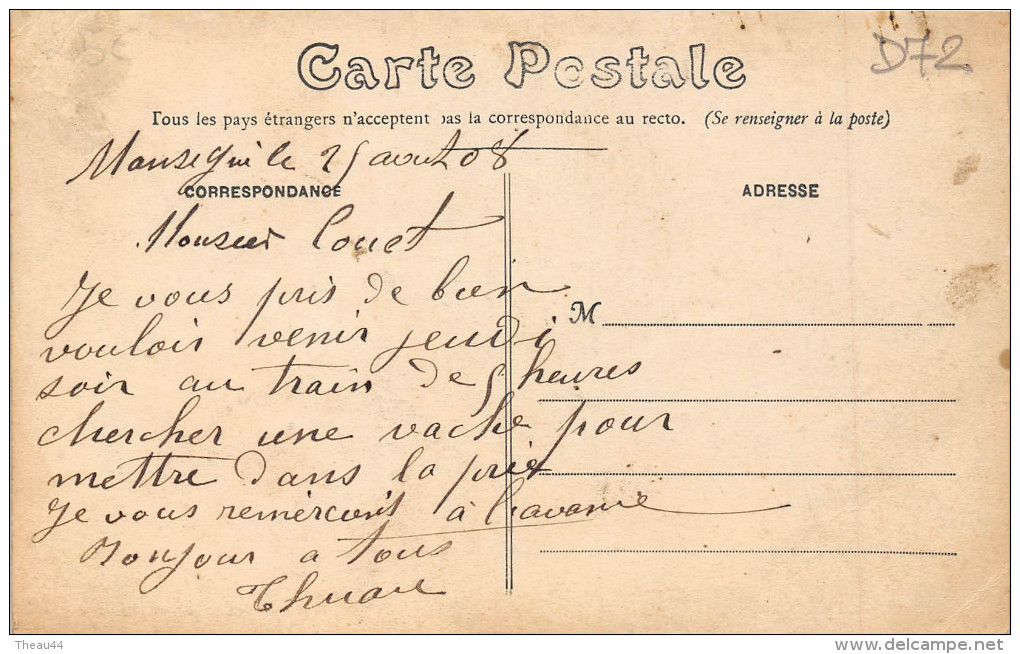 D72
Carte Postale
Tous les pays étrangers n'acceptent pas la correspondance au recto. (Se renseigner à la poste)
le 25 aout 08
CORRESPONDANCE
ADRESSE
Monsieur Couet
Je vous pris de bien
vouloir venir jeudi
soir au train de 5 heures
chercher une vache pour
mettre dans la prie
Je vous remercint à l'avance
Bonjour a tous
M
Theau44
www.delcampe.net